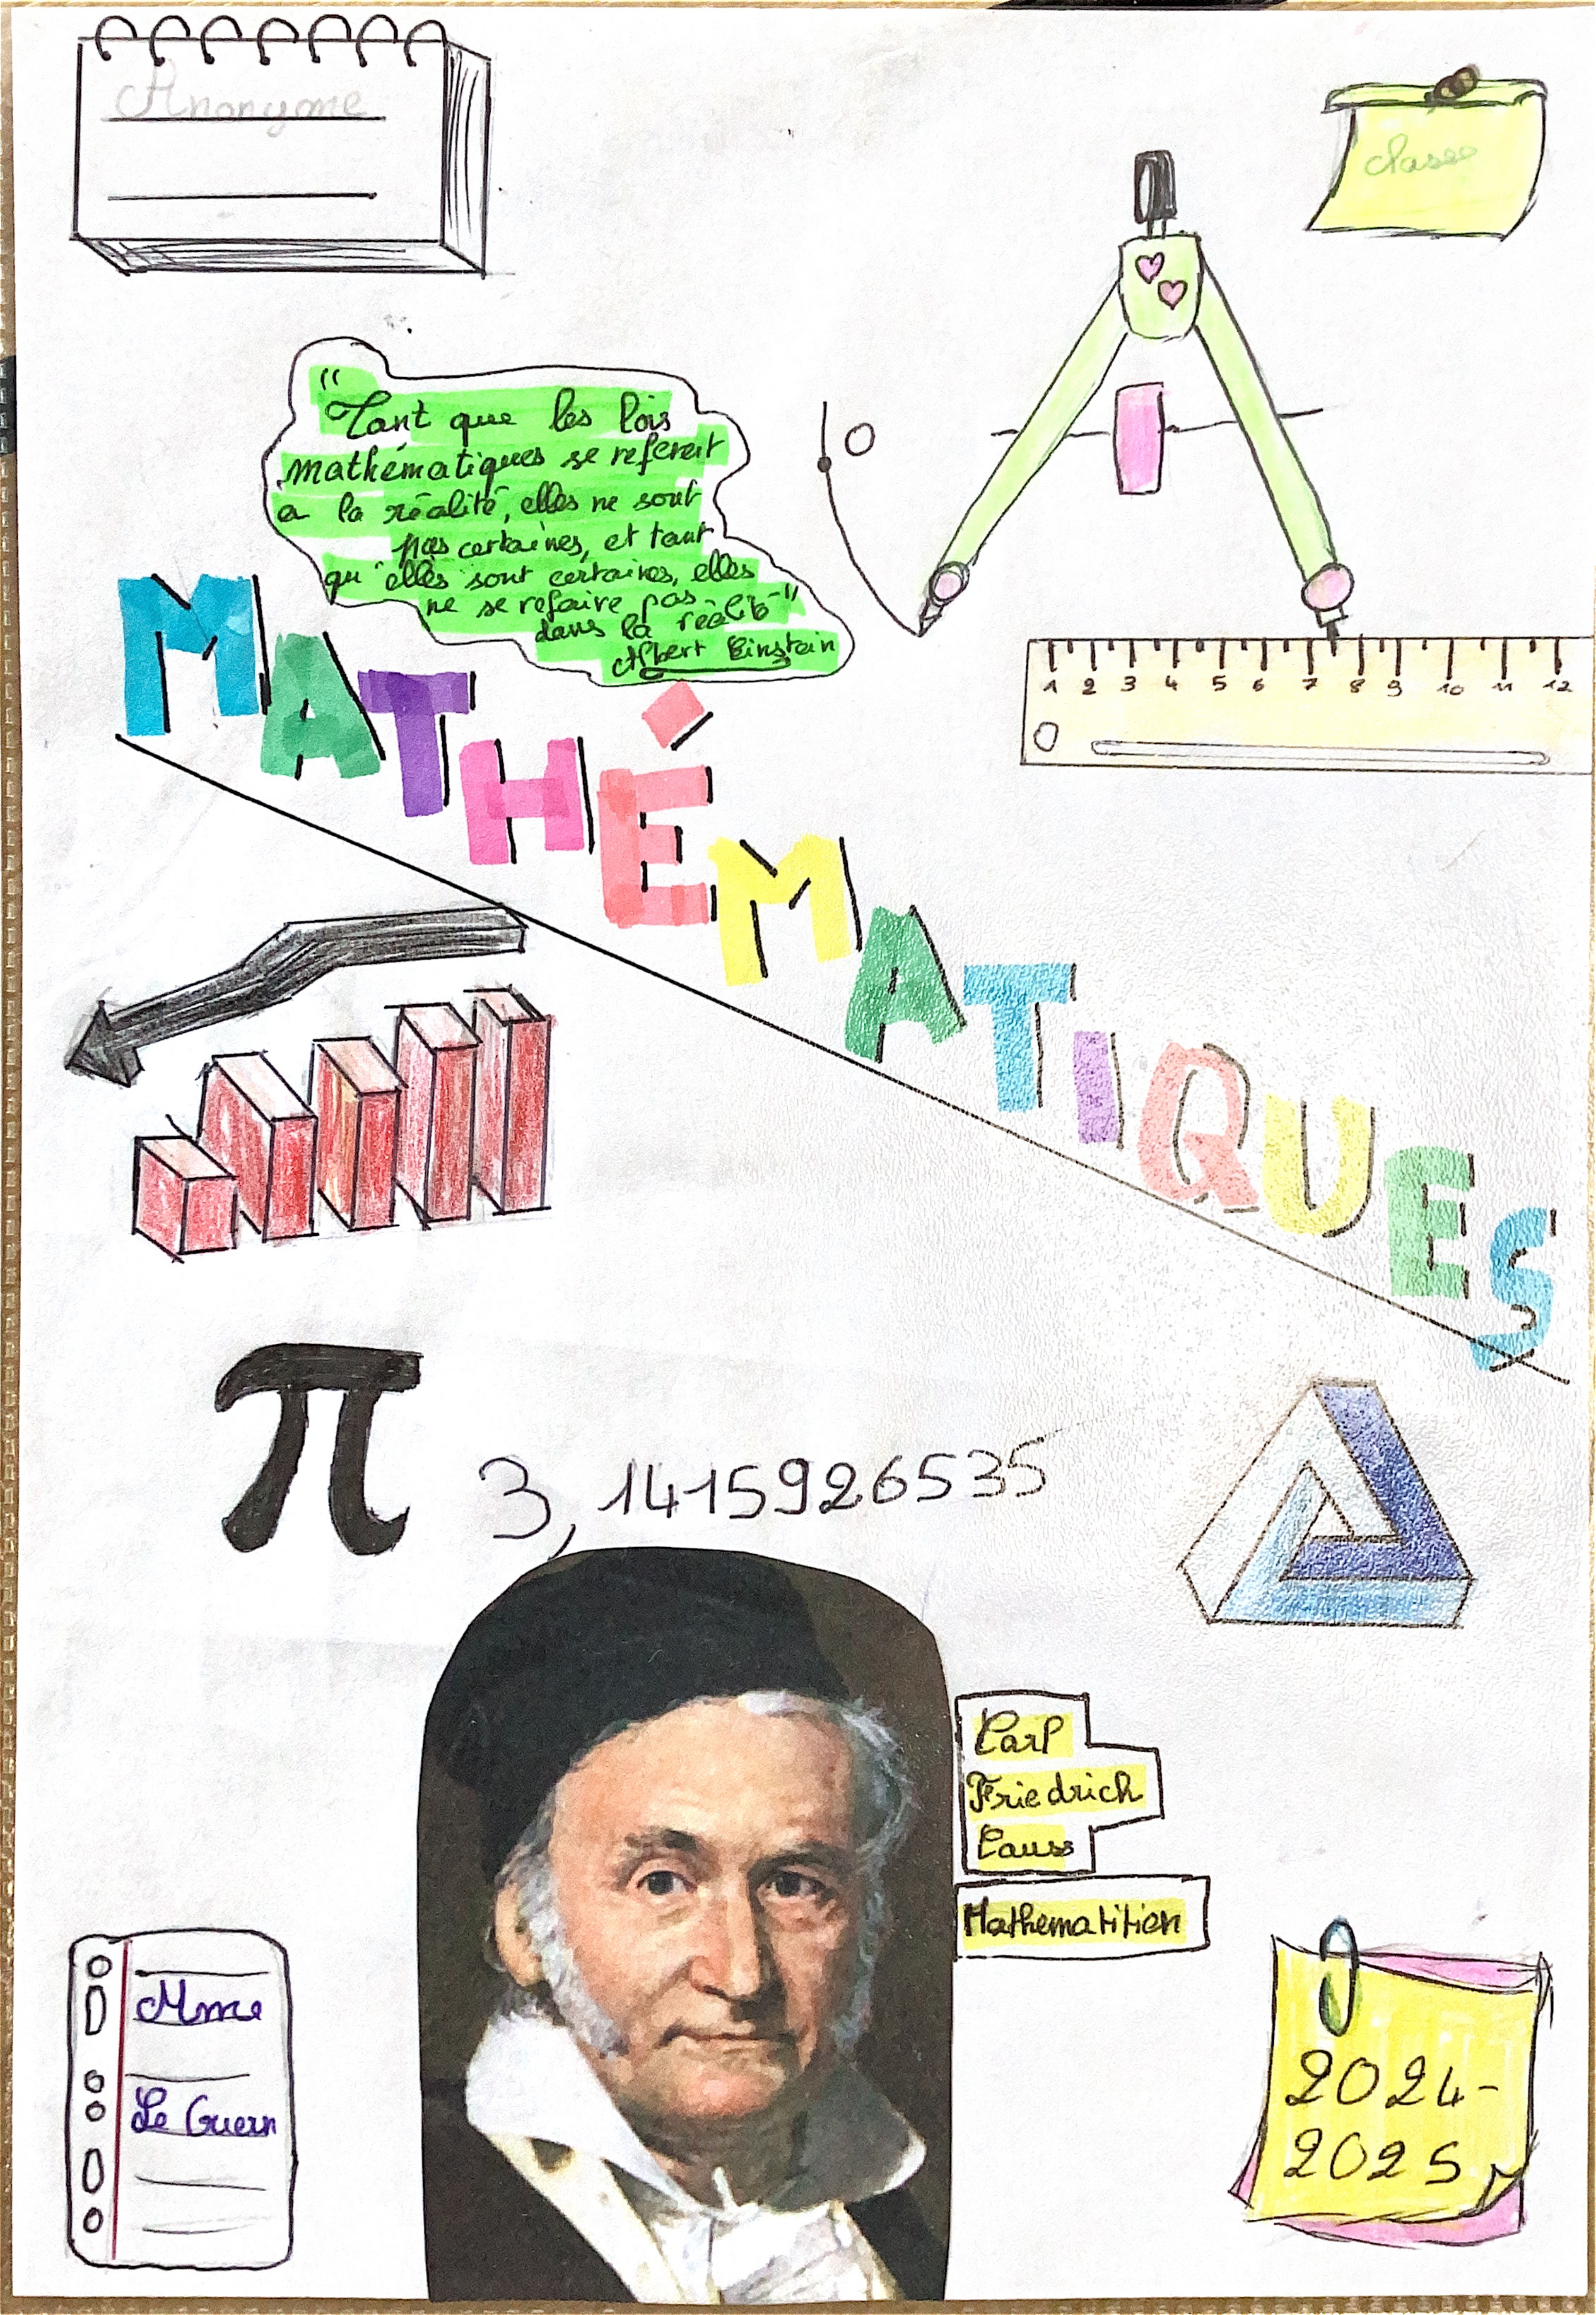 Anonyme
classe
"Tant que les lois
mathématiques se referent
a la réalité, elles ne sont
pas certaines, et tant
qu'elles sont certaines, elles
ne se refaire pas
dans la réalité"
Albert Einstein
O
MATHÉMATIQUES
1 2 3 4 5 6 7 8 9 10 11 12
0
π 3,1415926535
Carl
Friedrich
Gauss
Mathematitien
Mme
Le Guern
2024-
2025